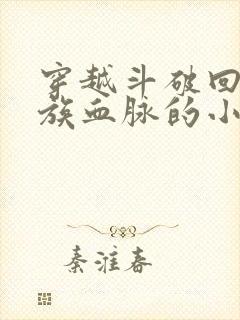 穿越斗破回
族血脉的小
秦淮春